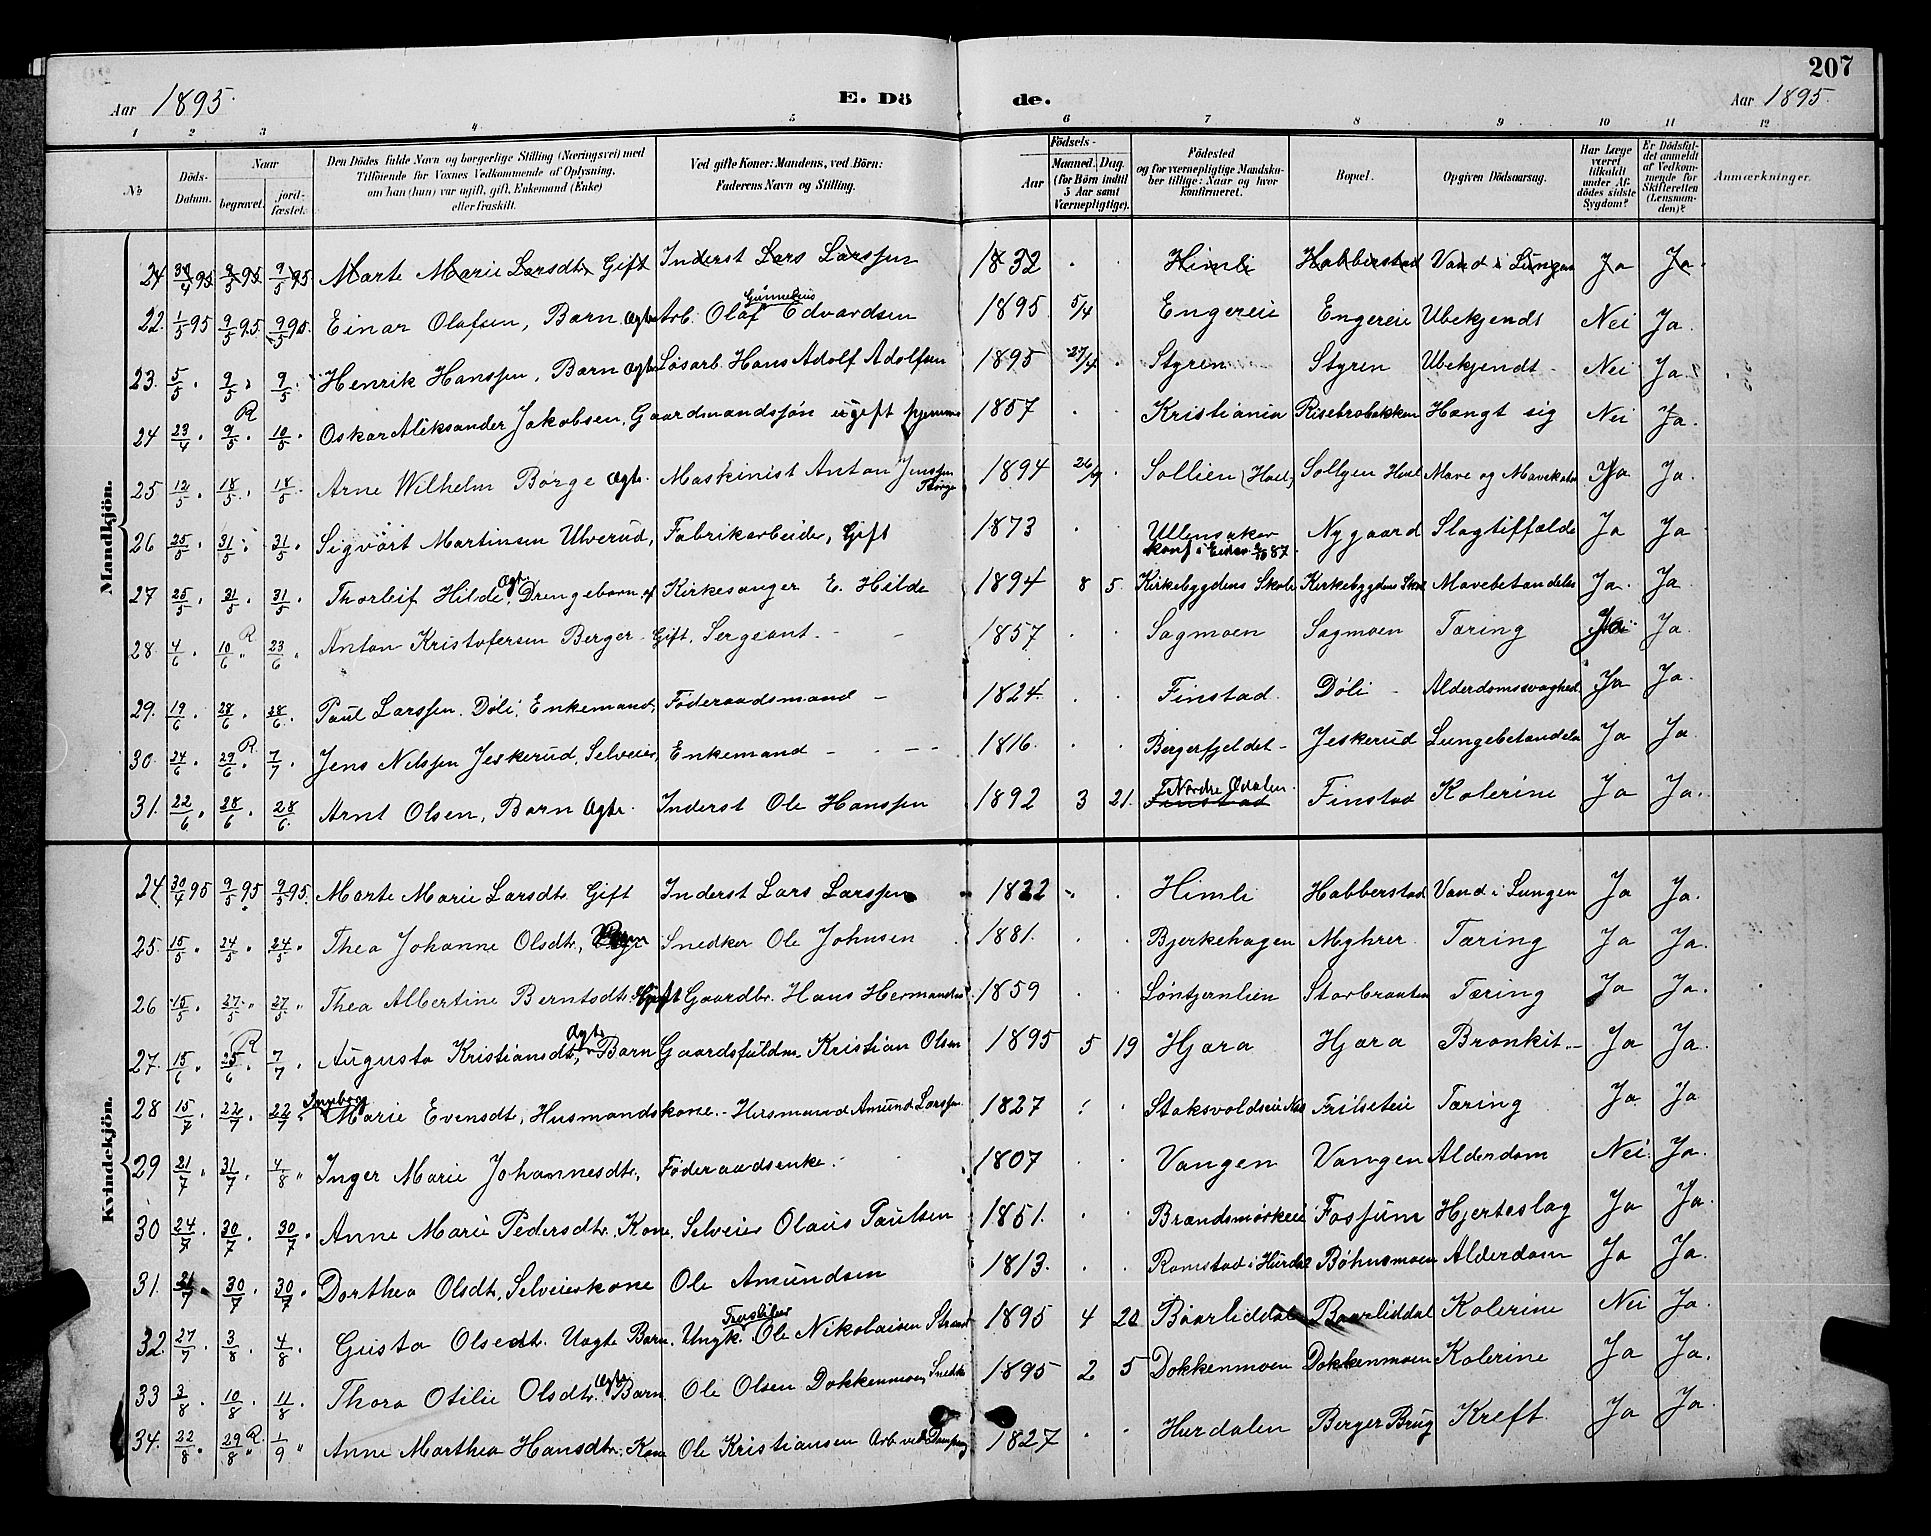 207
Aar 1895. E. Dö de. Aar 1895.
1 2 3 4 5 6 7 8 9 10 11 12
No Döds-Datum. Naar begravet. jord-fæstet. Den Dödes fulde Navn og borgerlige Stilling (Næringsvei) med Tilföiende for Voxnes Vedkommende af Oplysning, om han (hun) var ugift, gift, Enkemand (Enke) eller fraskilt. Ved gifte Koner: Mandens, ved Börn: Faderens Navn og Stilling. Aar Födsels- Maaned. Dag. (for Börn indtil 5 Aar samt Værnepligtige). Födested og for værnepligtige Mandskaber tillige: Naar og hvor konfirmeret. Bopæl. Opgiven Dödsaarsag. Har Læge været tilkaldt under Afdödes sidste Sygdom? Er Dödsfaldet anmeldt af Vedkommende for Skifteretten (Lensmanden)? Anmærkninger.
Mandkjön.
24 30/4 95 9/5 95 9/5 95 Marte Marie Larsdtr Gift Inderst Lars Larssen 1832 Himli Habberstad Vand i Lungen Ja Ja.
22. 1/5 95 9/5 95. 9/5 95. Einar Olafsen, Barn Ægte Arb. Olaf Gunnelius Edvardsen 1895 5/4 Engereie Engereie Ubekjendt Nei Ja.
23. 5/5 . 9/5 . 9/5 . Henrik Hanssen, Barn Ægte Løsarb. Hans Adolf Adolfsen 1895 27/4 Styren Styren Ubekjendt Nei Ja
24 23/4 . 9/5 R . 10/5 . Oskar Aleksander Jakobsen, Gaardmandssøn ugift hjemme 1857 Kristiania Risebrobakken Hængt sig Nei Ja.
25 12/5 . 18/5 . 18/5 . Arne Wilhelm Börge Ægte. Maskinist Anton Jenssen Börge 1894 26/9 Sollien (Hoel) Sollyen Hoel Mave og Ja Ja.
26 25/5 . 31/5 . 31/5 . Sigvart Martinsen Ulverud, Fabrikarbeider, Gift 1873 Ullensaker Nygaard Slagtilfælde Ja Ja
27 25/5 . 31/5 . 31/5 . Thorleif Hilde Ægte, Drengebarn af Kirkesanger E. Hilde 1894 8 5. Kirkebygdens Skole Kirkebygdens Skole Mavebetændelse Ja. Ja
28. 4/6 . 10/6 R . 23/6 . Anton Kristofersen Berger. Gift. Sergeant. 1857 Sagmoen Sagmoen Tæring Ja.
29. 19/6 . 28/6 . 28/6 . Paul Larssen. Döli, Enkemand, Föderaadsmand 1824. Finstad. Döli Alderdomssvaghed Ja Ja.
30. 24/6 . 29/6 R . 7/7 . Jens Nilssen Jeskerud, Selveier, Enkemand 1816. Bergerfjeldet Jeskerud Lungebetændelse Ja Ja
31. 22/6 . 28/6 . 28/6 . Arnt Olsen, Barn Ægte. Inderst Ole Hanssen 1892 3 21. Nordre Odalen. Finstad Finstad Kolerine Ja Ja.
Kvindekjön.
24 30/4 95 9/5 95 9/5 95. Marte Marie Larsdtr Gift Inderst Lars Larssen 1832 Himli Habberstad Vand i Lungen Ja Ja.
25. 15/5 . 24/5 . 24/5 . Thea Johanne Olsdtr, Snedker Ole Johnsen 1881. Bjerkehagen Myhrer. Tæring Ja Ja.
26 15/5 . 27/5 . 27/5 . Thea Albertine Berntsdtr. Gift Gaardbr. Hans Hermansen 1859 Löntjernlien Storbraaten Tæring Ja Ja.
27. 15/6 . 25/6 R . 7/7 . Augusta Kristiansdtr. Ægte Barn Gaardsfuldm. Kristian Olsen 1895 5 19 Hjæra Hjæra Bronkit. Ja Ja.
28 15/7 . 22/7 . 22/7 . Ingeborg Marie Evensdtr, Husmandskone. Husmand Amund Larssen 1827 Stoksvoldseie Nes Frilseteie Tæring Ja Ja
29 21/7 . 31/7 . 4/8 . Inger Marie Johannesdtr, Föderaadsenke. 1807 Vangen Vangen Alderdom Nei Ja.
30 24/7 . 30/7 . 30/7 . Anne Marie Pedersdtr. Kone. Selveier Olaus Paulsen 1851. Brandsmørkeie Fossum Hjerteslag Ja Ja.
31. 21/7 . 30/7 . 30/7 . Dorthea Olsdtr, Selveierkone Ole Amundsen 1813. Romstad i Hurdal Böhusmoen Alderdom Ja Ja.
32. 27/7 . 3/8 . 4/8 . Gusta Olsedtr. Uægte Barn. Ungk. Ole Nikolaisen Strand 1895 4 20 Baarliddalen Baarliddal Kolerine Nei Ja.
33 3/8 . 10/8 . 11/8 . Thora Otilie Olsdtr. Ægte Barn. Ole Olsen Dokkenmoen, Snedker 1895 2 5 Dokkenmoen Dokkenmoen Kolerine Ja Ja.
34. 22/8 . 29/8 R . 1/9 . Anne Marthea Hansdtr. Kone Ole Kristiansen Arb. ved 1827 Hurdalen Berger Brug Kreft. Ja Ja.